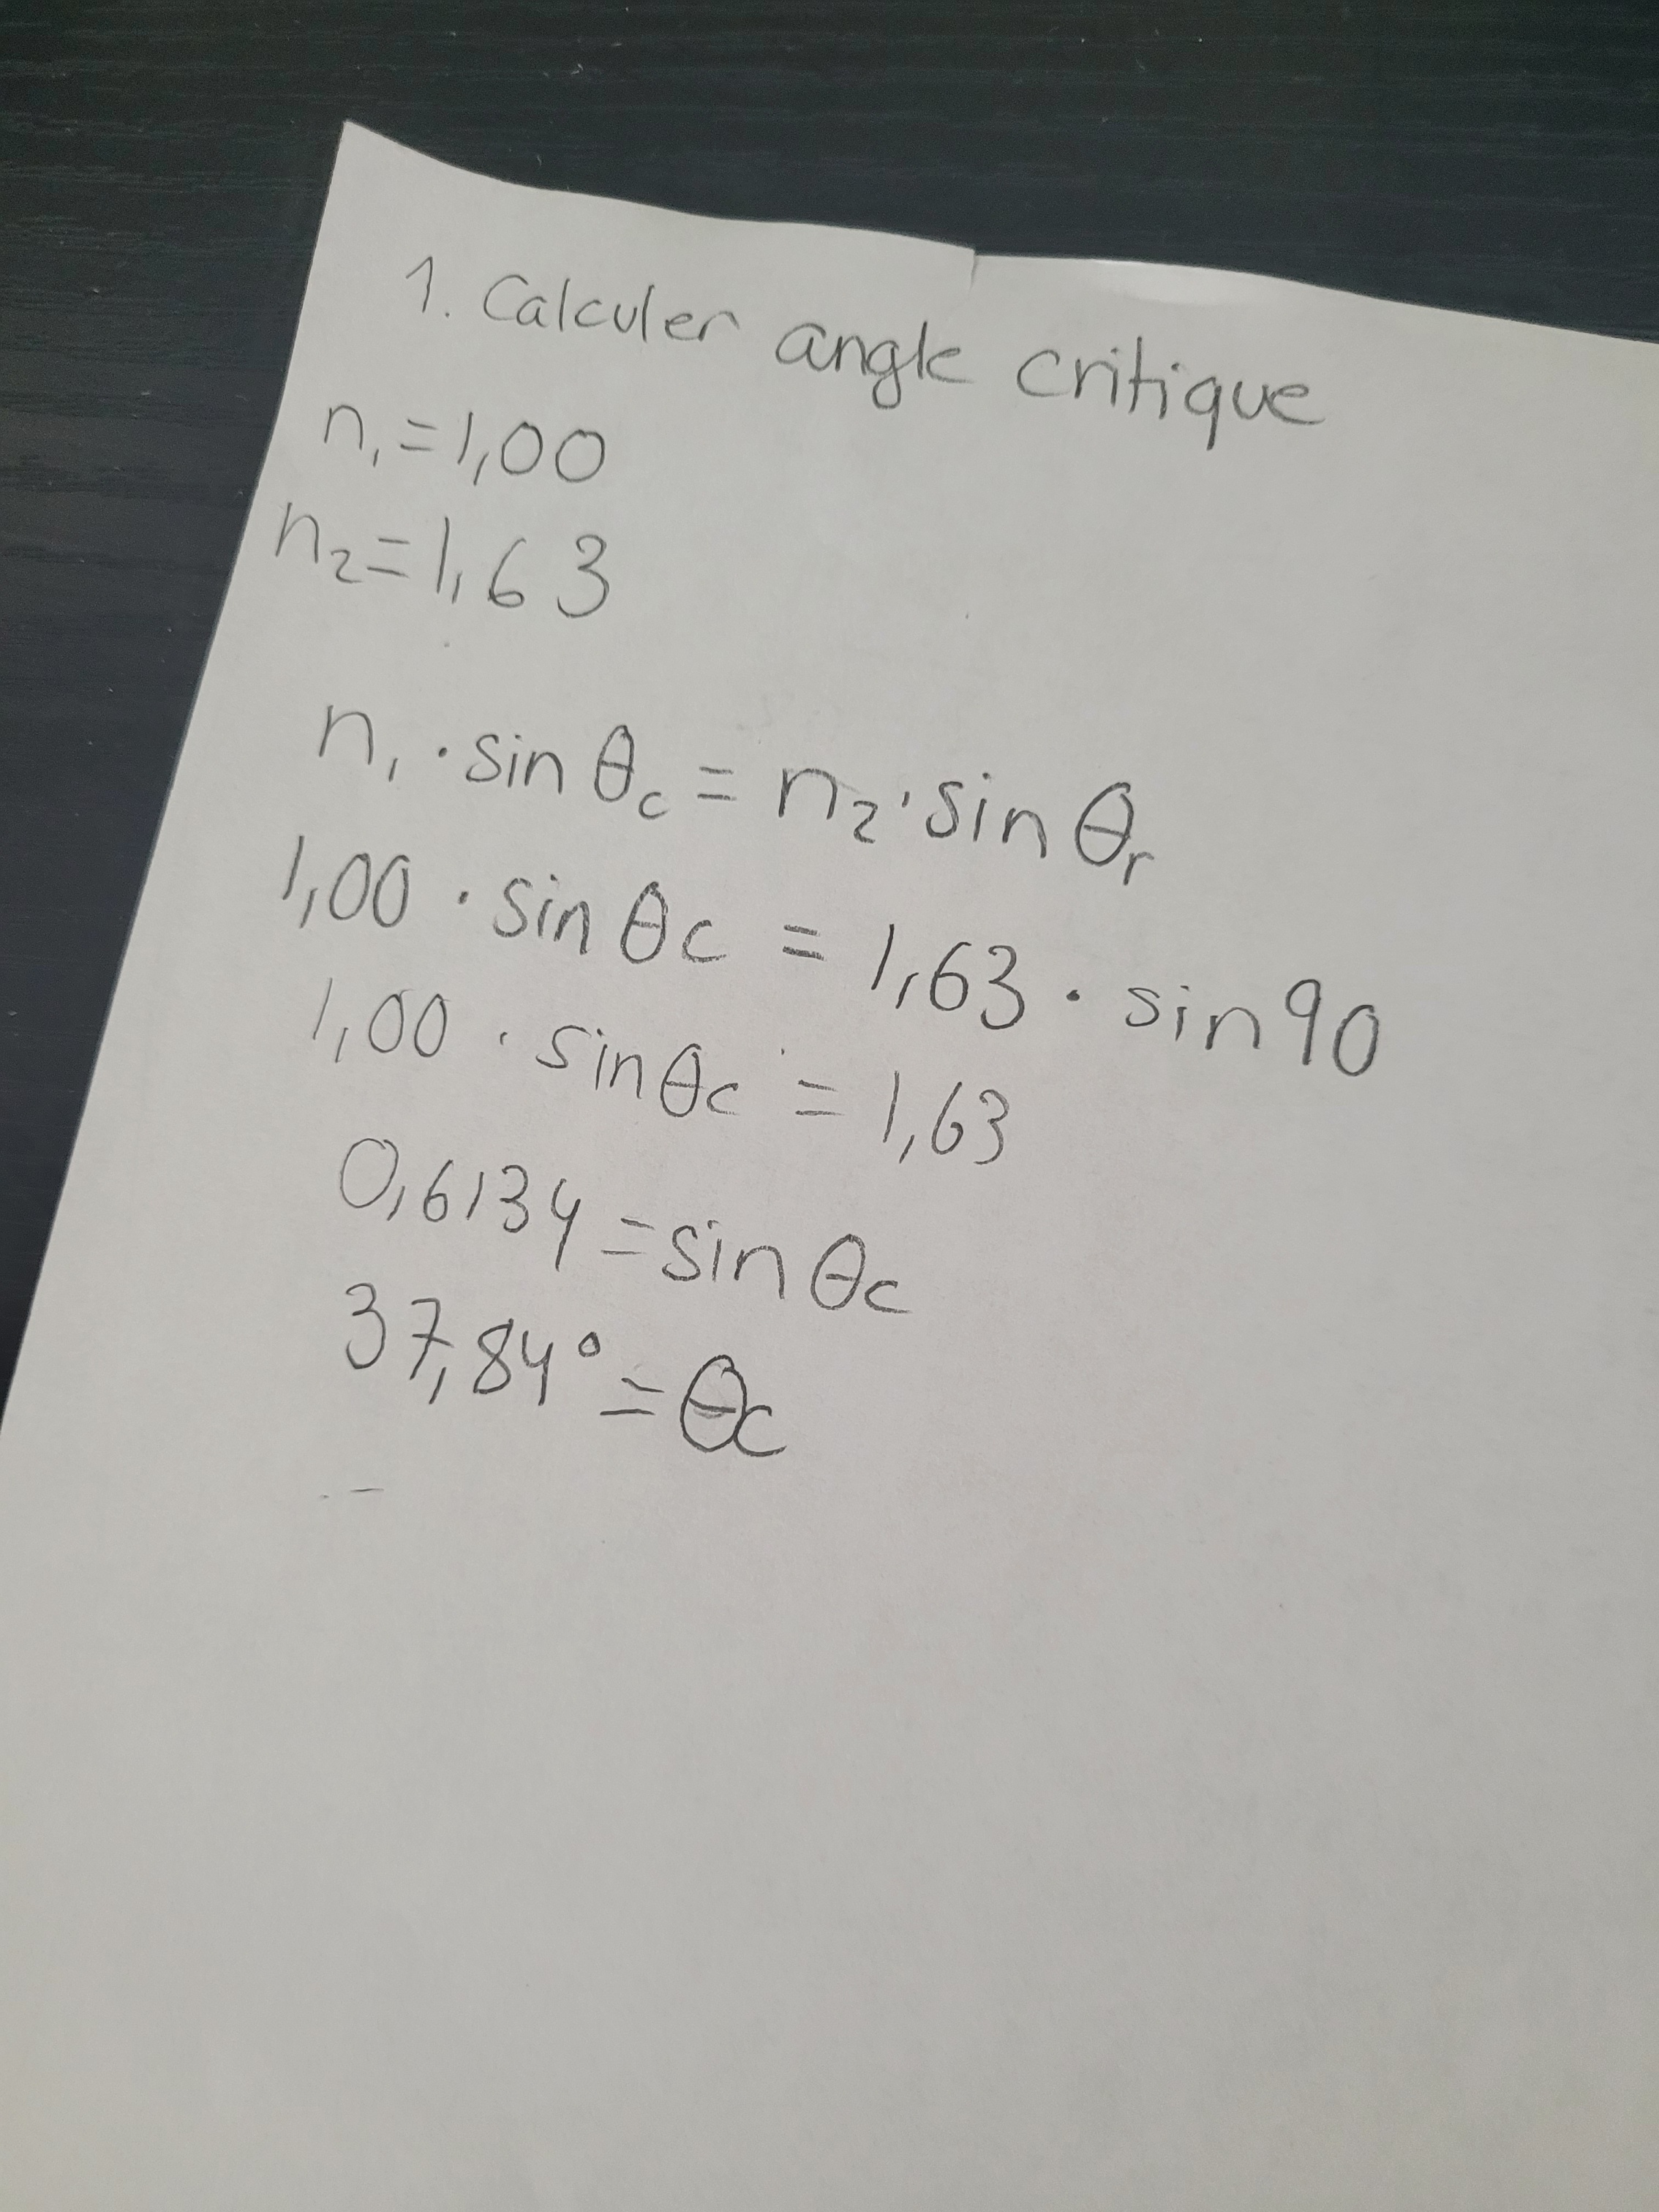 1. Calculer angle critique
n₁=1,00
n₂=1,63
n₁·sin θc = n₂·sin θr
1,00 · sin θc = 1,63 · sin 90
1,00 · sin θc = 1,63
0,6134 = sin θc
37,84° = θc